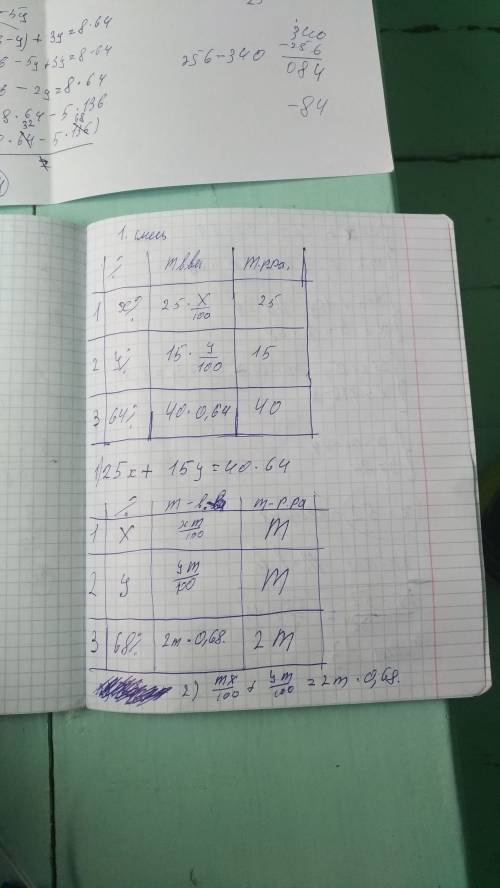 -5y
-y) + 3y = 8·64
- 5y + 3y = 8·64
- 2y = 8·64
8·64 - 5·136
32 68
·64 - 5·136)
256-340
340
-256
084
-84
1. смесь
% m в.ва m р.ра.
1 x% 25·x/100 25
2 y% 15·y/100 15
3 64% 40·0,64 40
1) 25x + 15y = 40·64
% m-в.ва m-р.ра
1 x xm/100 m
2 y ym/100 m
3 68% 2m·0,68. 2m
2) mx/100 + ym/100 = 2m·0,68.